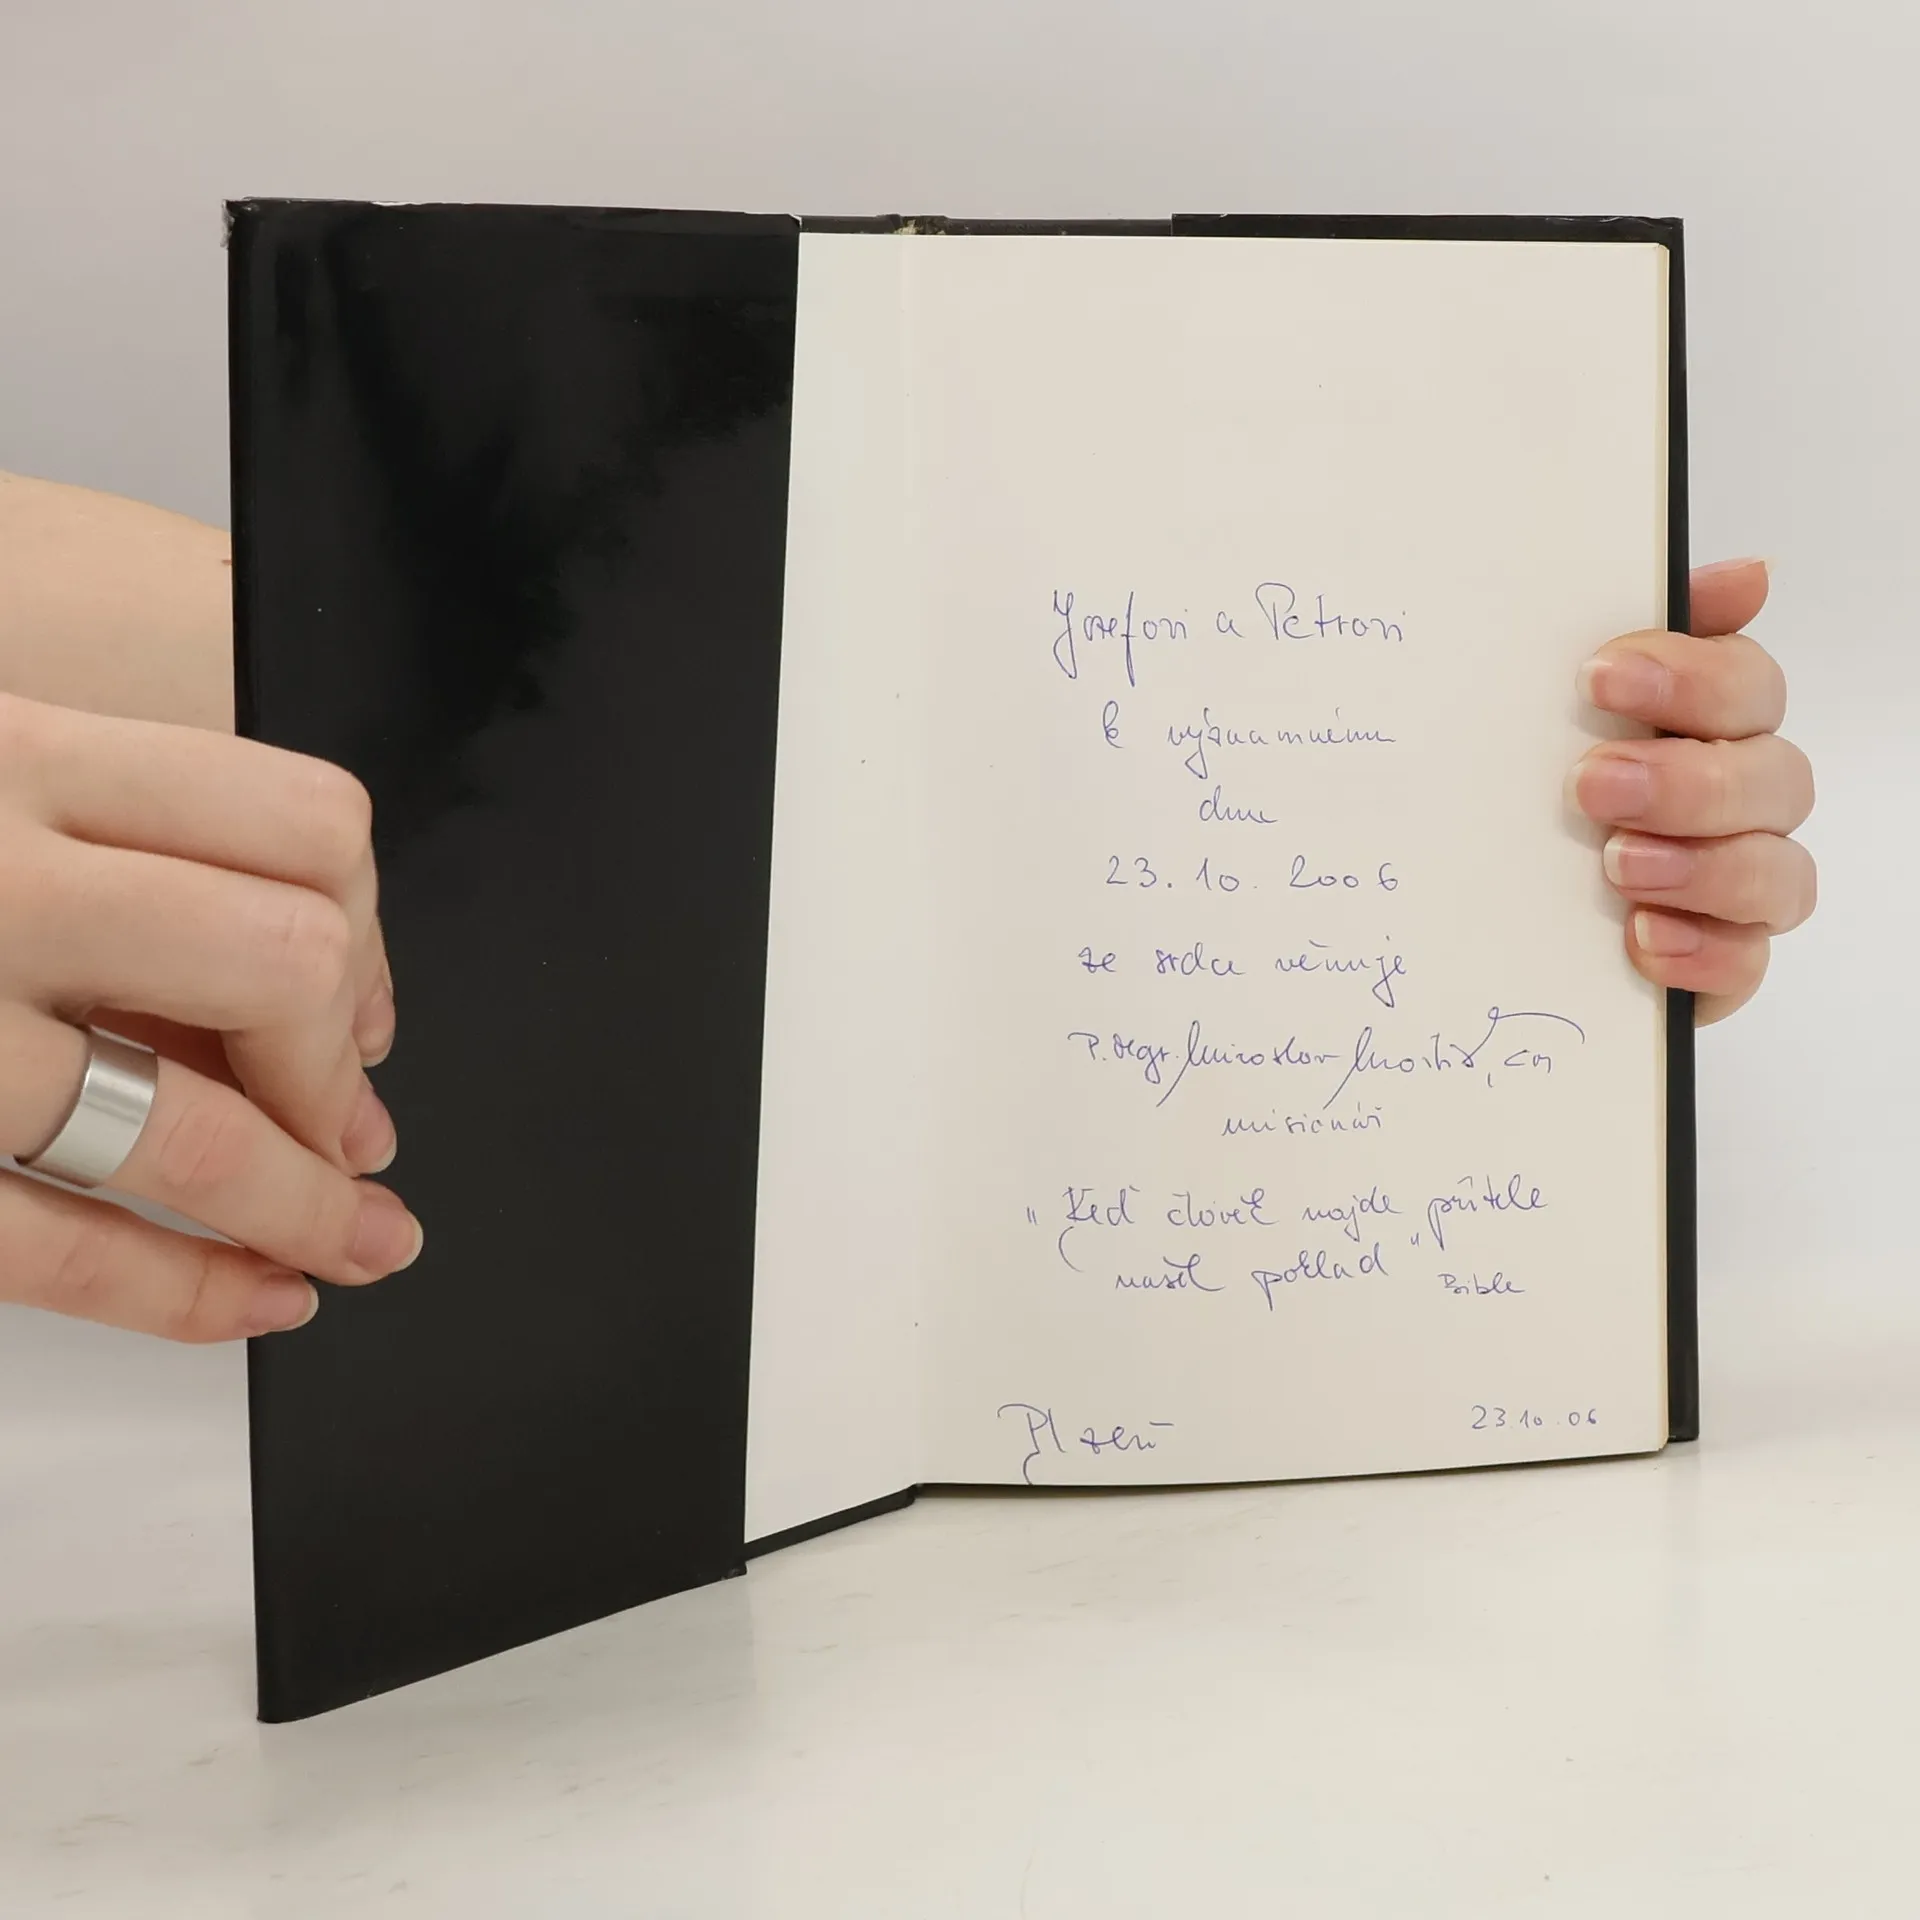 Josefovi a Petrovi
k významnému
dnu
23. 10. 2006
ze srdce věnuje
P. Mgr. Miroslav CM
misionář
"Keď člověk najde přítele
našel poklad" Bible
Plzeň 23.10.06